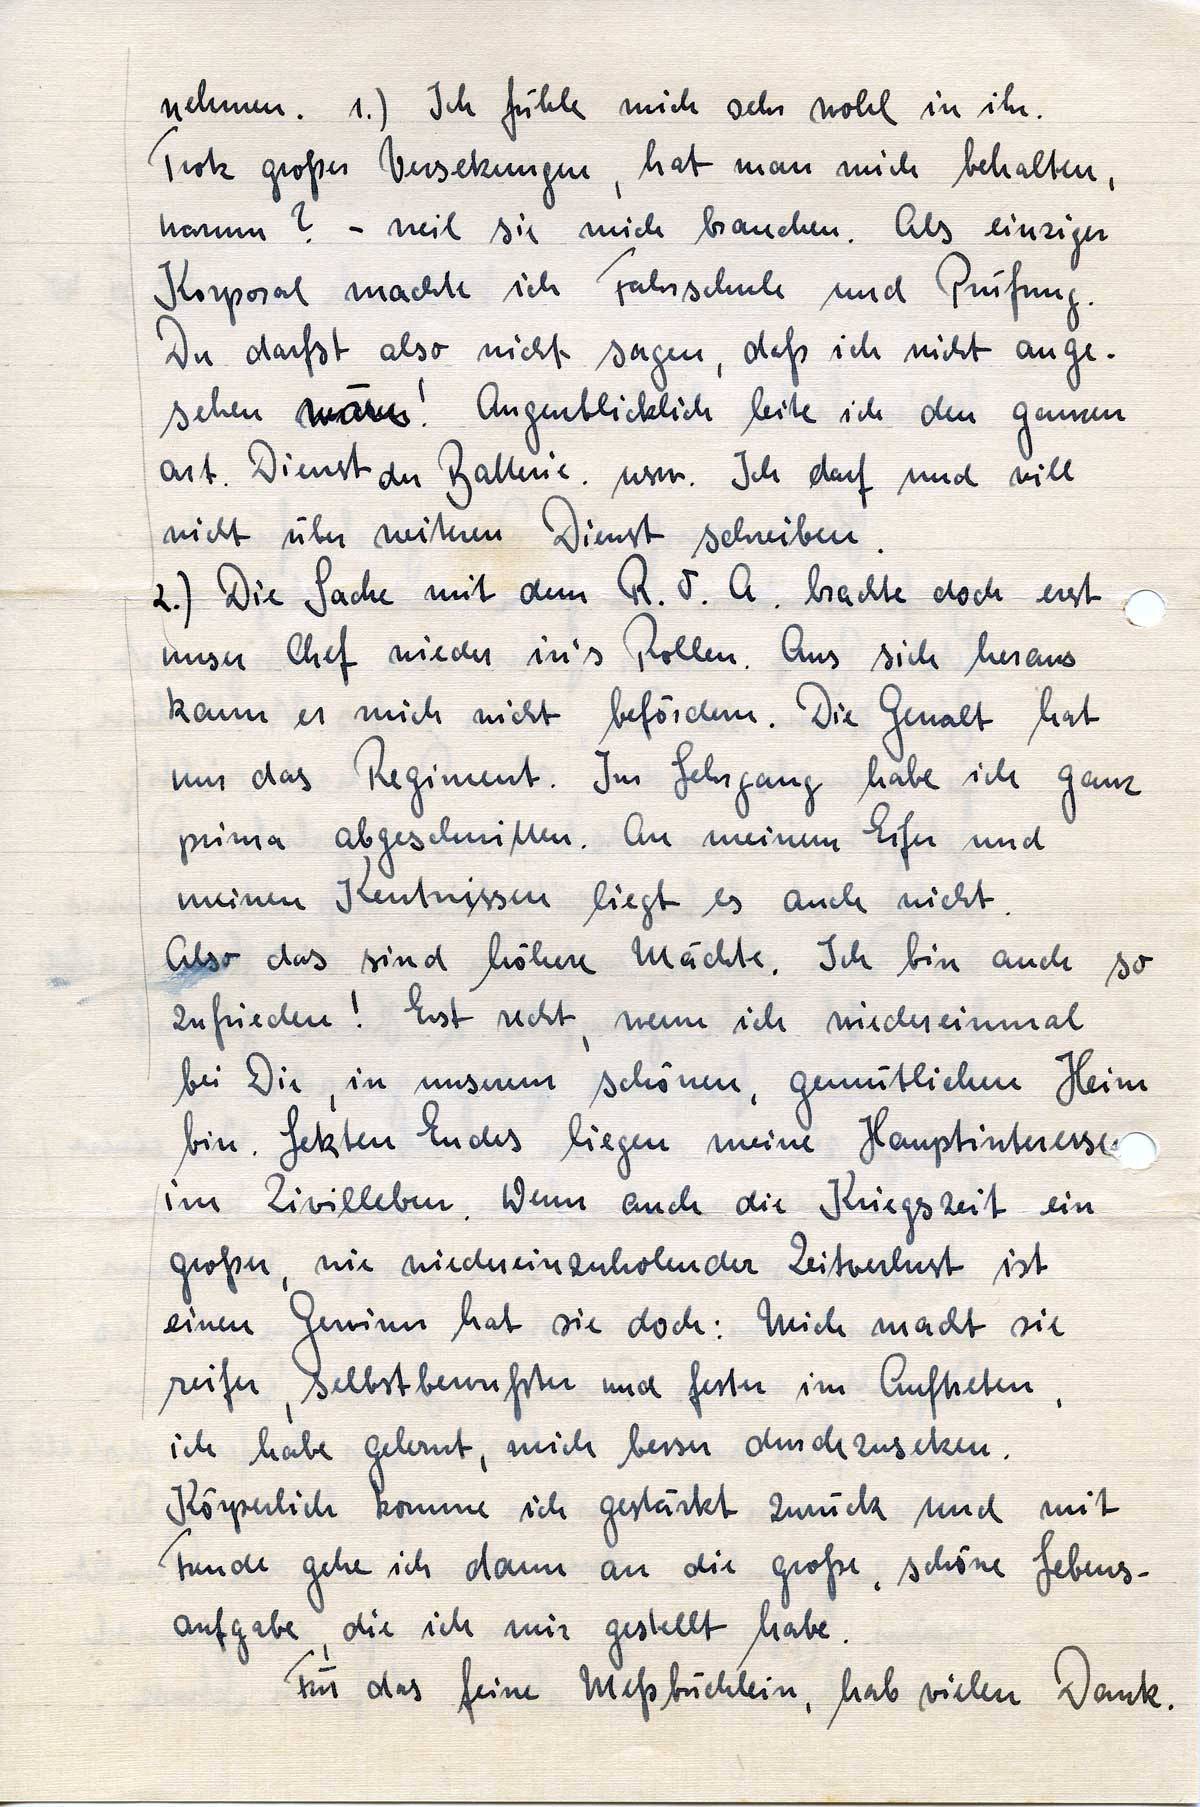 nehmen. 1.) Ich fühle mich sehr wohl in ihr.
Trotz großer Versetzungen, hat man mich behalten,
warum? - weil sie mich brauchen. Als einziger
Korporal machte ich Fahrschule und Prüfung.
Du darfst also nicht sagen, daß ich nicht ange-
sehen wäre! Augenblicklich leite ich den ganzen
art. Dienst der Batterie. usw. Ich darf und will
nicht über weiteren Dienst schreiben.
2.) Die Sache mit dem R.O.A. brachte doch erst
unser Chef wieder in's Rollen. Aus sich heraus
kann er mich nicht befördern. Die Gewalt hat
nur das Regiment. Im Lehrgang habe ich ganz
prima abgeschnitten. An meinem Eifer und
meinen Kentnissen liegt es auch nicht.
Also das sind höhere Mächte. Ich bin auch so
zufrieden! Erst recht, wenn ich wiedereinmal
bei Dir, in unserem schönen, gemütlichen Heim
bin. Letzten Endes liegen meine Hauptinteressen
im Zivilleben. Wenn auch die Kriegszeit ein
großer, nie wiedereinzuholender Zeitverlust ist
einen Gewinn hat sie doch: Mich macht sie
reifer, selbstbewußter und fester im Auftreten,
ich habe gelernt, mich besser durchzusetzen.
Körperlich komme ich gestärkt zurück und mit
Freude gehe ich dann an die große, schöne Lebens-
aufgabe, die ich mir gestellt habe.
Für das feine Meßbüchlein, hab vielen Dank.